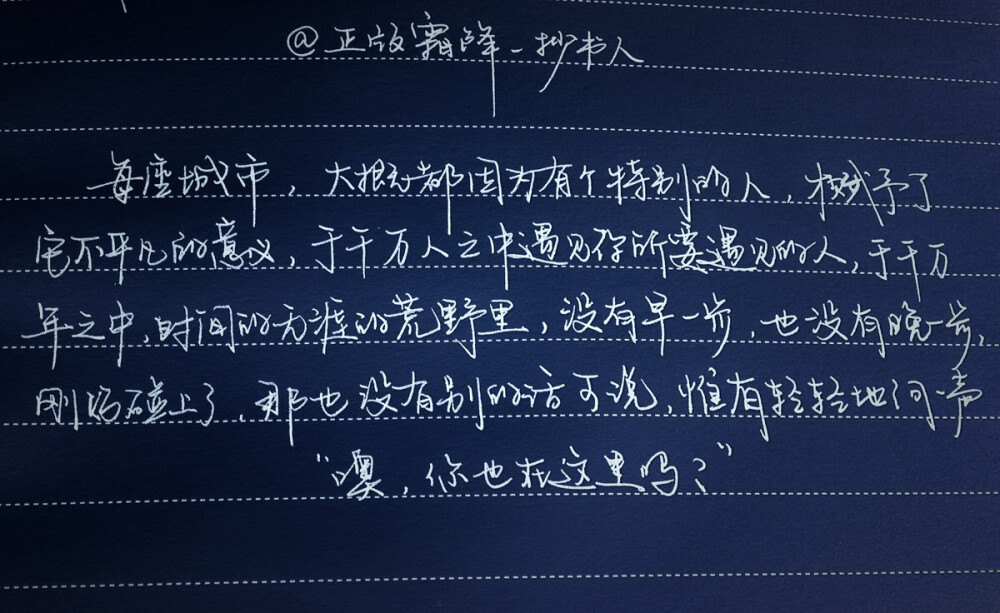 @正版霜降_抄书人
每座城市，大概都因为有个特别的人，赋予了
它不平凡的意义，于千万人之中遇见你所要遇见的人，于千万
年之中，时间的无涯的荒野里，没有早一步，也没有晚一步，
刚好碰上了，那也没有别的话可说，惟有轻轻地问一声
“噢，你也在这里吗？”